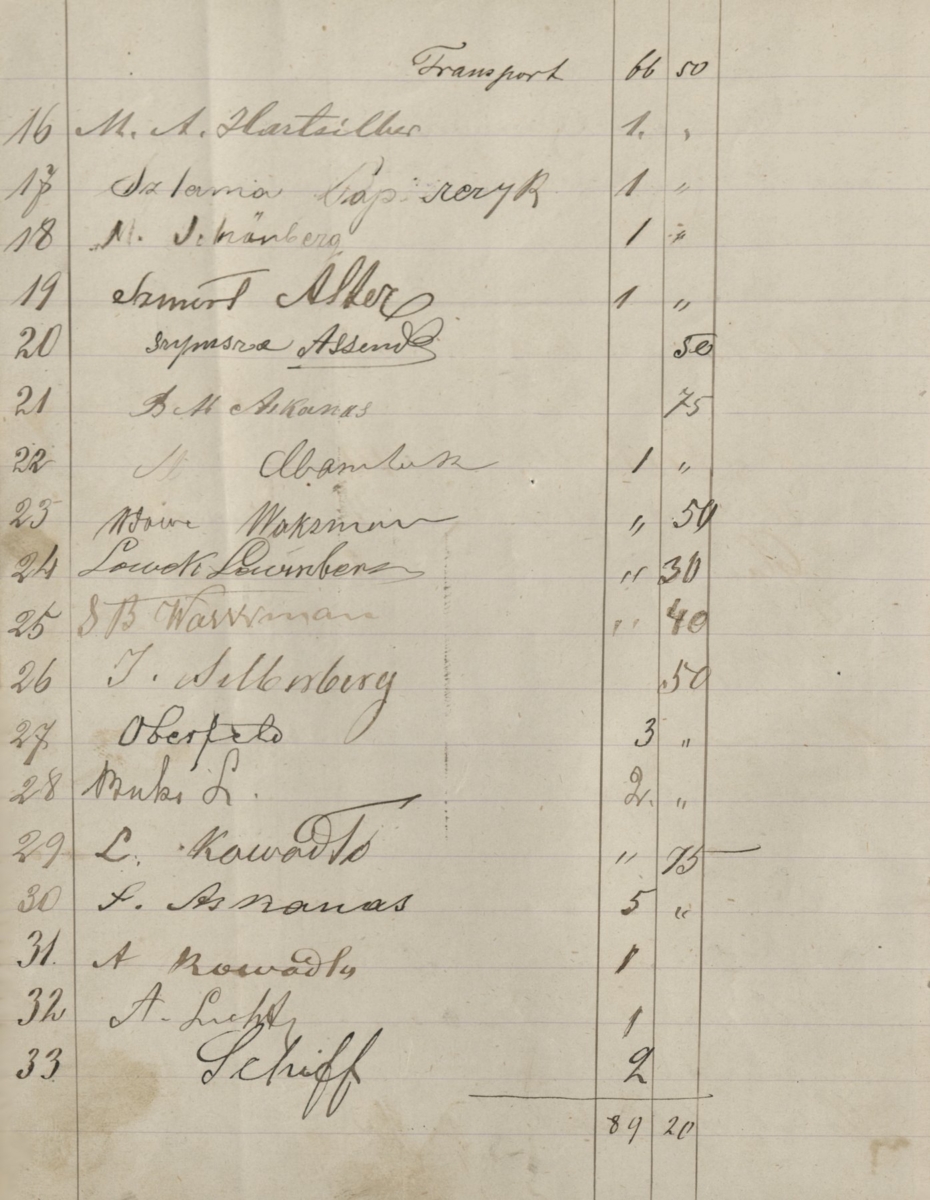 Transport 66 50
16 M. A. Hartsilber 1. "
17 Szlama 1 "
18 M. Schönberg 1 "
19 Szmul Alter 1 "
20 50
21 B M Askanas 75
22 M 1 "
23 Waksman " 50
24 " 30
25 S B Wasserman " 40
26 J. Silberberg 50
27 Oberfeld 3 "
28 L. 2. "
29 L. Kowadło " 75 —
30 S. Askanas 5 "
31. A Kowadło 1
32 A. Licht 1
33 Schiff 2
89 20